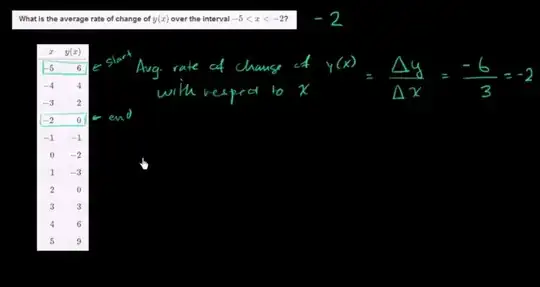 What is the average rate of change of y(x) over the interval −5 < x < −2?
-2
x y(x)
-5 6 ← start
-4 4
-3 2
-2 0 ← end
-1 -1
0 -2
1 -3
2 0
3 3
4 6
5 9
Avg. rate of change of y(x) = Δy/Δx = -6/3 = -2
with respect to x